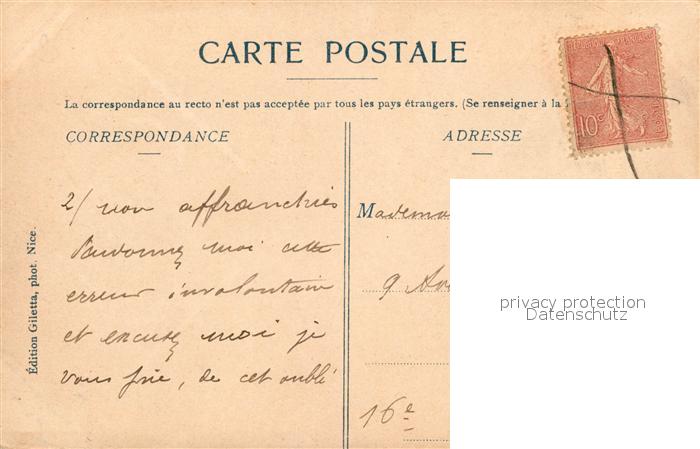 CARTE POSTALE
La correspondance au recto n'est pas acceptée par tous les pays étrangers. (Se renseigner à la
CORRESPONDANCE
ADRESSE
2/ non affranchies
Pardonnez moi cette
erreur involontaire
et excusez moi je
vous prie, de cet oubli
Édition Giletta, phot. Nice.
10c
Madem
9 Av
16e
privacy protection
Datenschutz